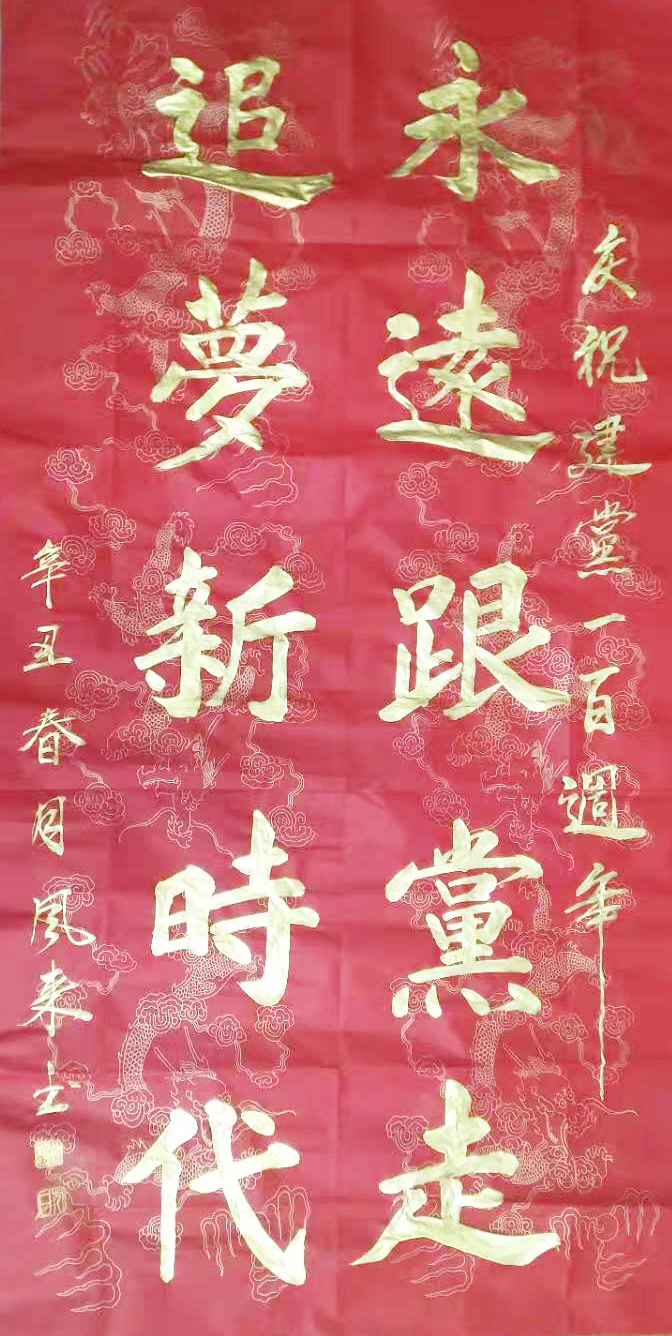 庆祝建黨一百週年
永遠跟黨走
追夢新時代
辛丑春月風来书